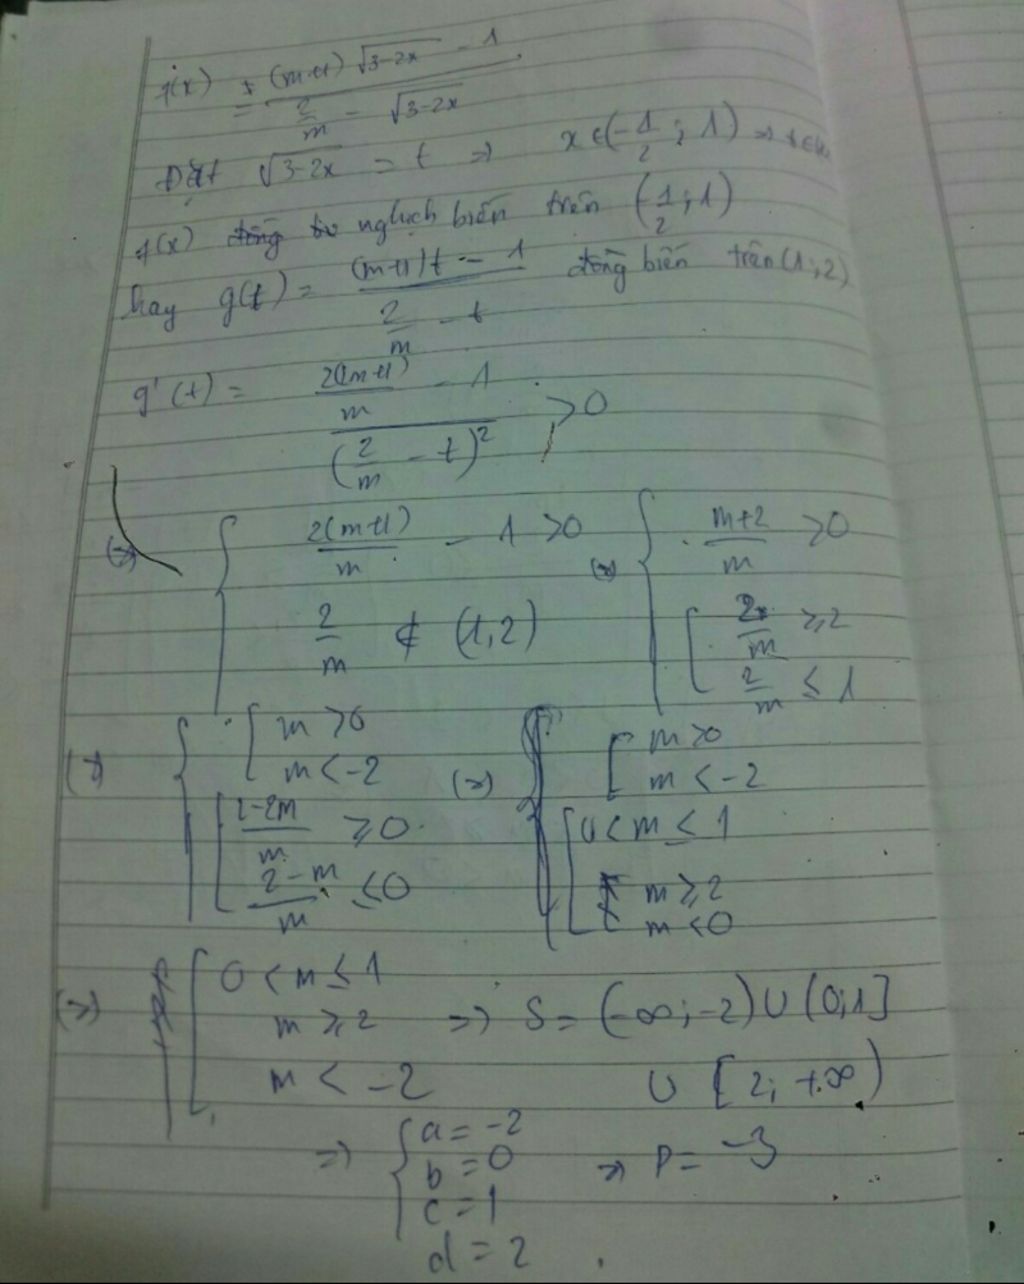 f(x) = \frac{(m+1)\sqrt{3-2x} - 1}{\frac{2}{m} - \sqrt{3-2x}}
Đặt \sqrt{3-2x} = t ⇒ x ∈ (-\frac{1}{2}; 1) ⇒ t ∈
f(x) nghịch biến trên (\frac{1}{2}; 1)
hay g(t) = \frac{(m+1)t - 1}{\frac{2}{m} - t} đồng biến trên (1; 2)
g'(t) = \frac{\frac{2(m+1)}{m} - 1}{(\frac{2}{m} - t)^2} > 0
(⇒) { \frac{2(m+1)}{m} - 1 > 0 (⇒) { \frac{m+2}{m} > 0
\frac{2}{m} ∉ (1, 2) [ \frac{2}{m} ≥ 2
\frac{2}{m} ≤ 1
(⇒) { [ m > 0 (⇒) { [ m > 0
m < -2 m < -2
[ \frac{2-2m}{m} ≥ 0 [ 0 < m ≤ 1
\frac{2-m}{m} ≤ 0 [ m ≥ 2
m < 0
(⇒) [ 0 < m ≤ 1
m ≥ 2 ⇒ S = (-∞; -2) ∪ (0; 1]
m < -2 ∪ [2; +∞)
⇒ { a = -2
b = 0 ⇒ P = -3
c = 1
d = 2